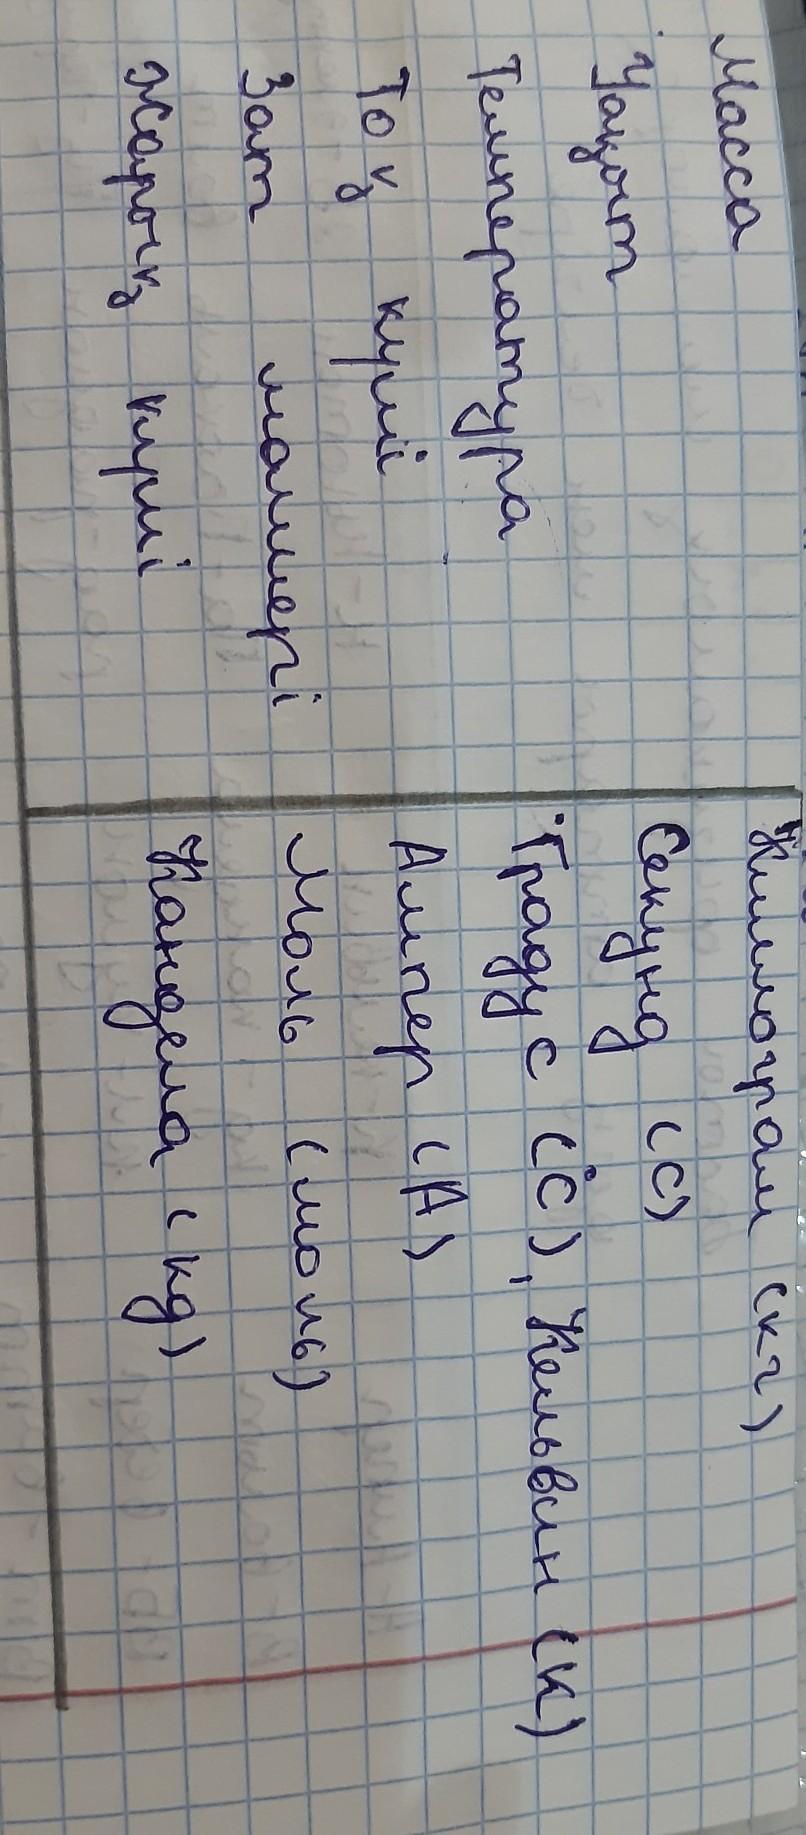 Масса Килограм (кг)
Уақыт Секунд (С)
Температура Градус (°С), Кельвин (К)
Тоқ күші Ампер (А)
Зат мөлшері Моль (моль)
Жарық күші Кандела (кд)